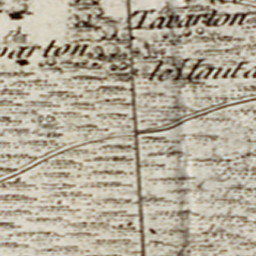 Tavarton
varton
le Hauta